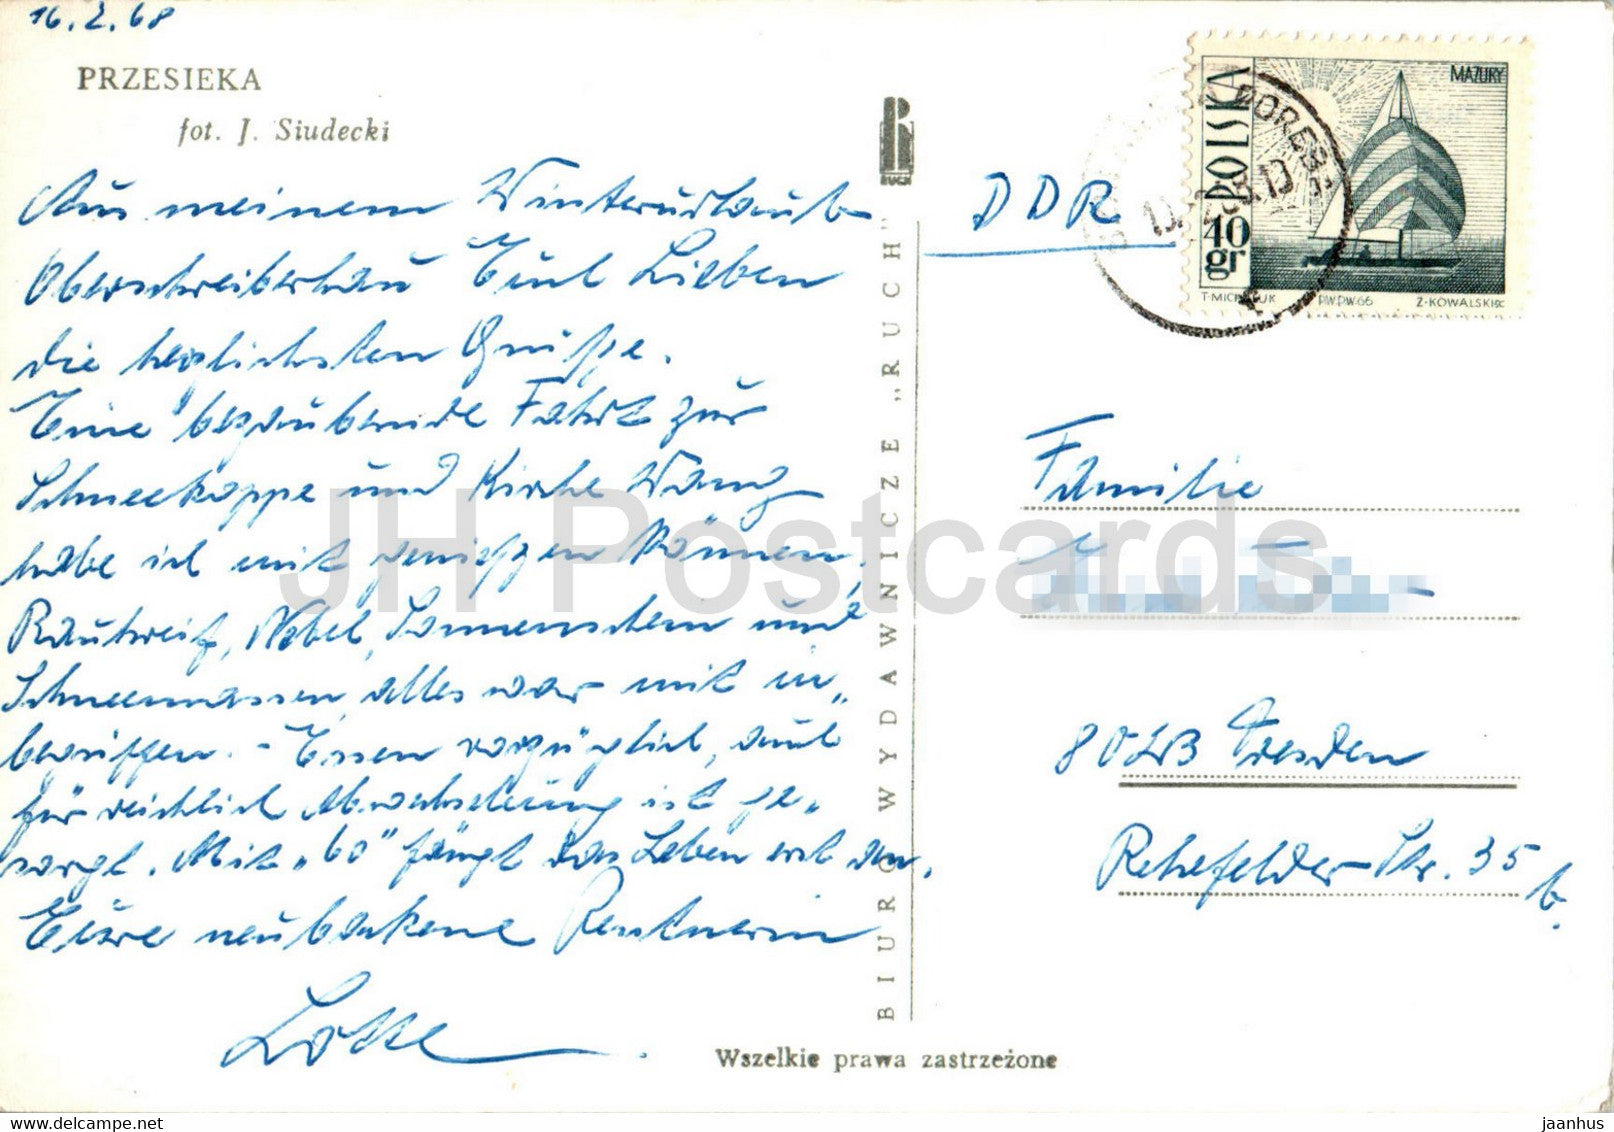 16.2.68
PRZESIEKA
fot. J. Siudecki
Aus meinem Winterurlaub
Oberschreiberhau Euch Lieben
die herzlichsten Grüße.
Eine bezaubernde Fahrt zur
Schneekoppe und Kirche Wang
habe ich mit genießen können,
Rauhreif, Nebel, Sonnenschein und
Schneemassen, alles war mit in„
begriffen. - Essen vorzüglich, auch
für reichlich Abwechslung ist ge„
sorgt. Mit „60" fängt das Leben erst an.
Eure neubackene Rentnerin
Lotte.
BIURO WYDAWNICZE „RUCH"
RUCH
Wszelkie prawa zastrzeżone
DDR
POLSKA
40 gr
MAZURY
PW.PW.66
Familie
8023 Dresden
Rehefelder-Str. 35
b.
JH Postcards
jaanhus @ delcampe.net